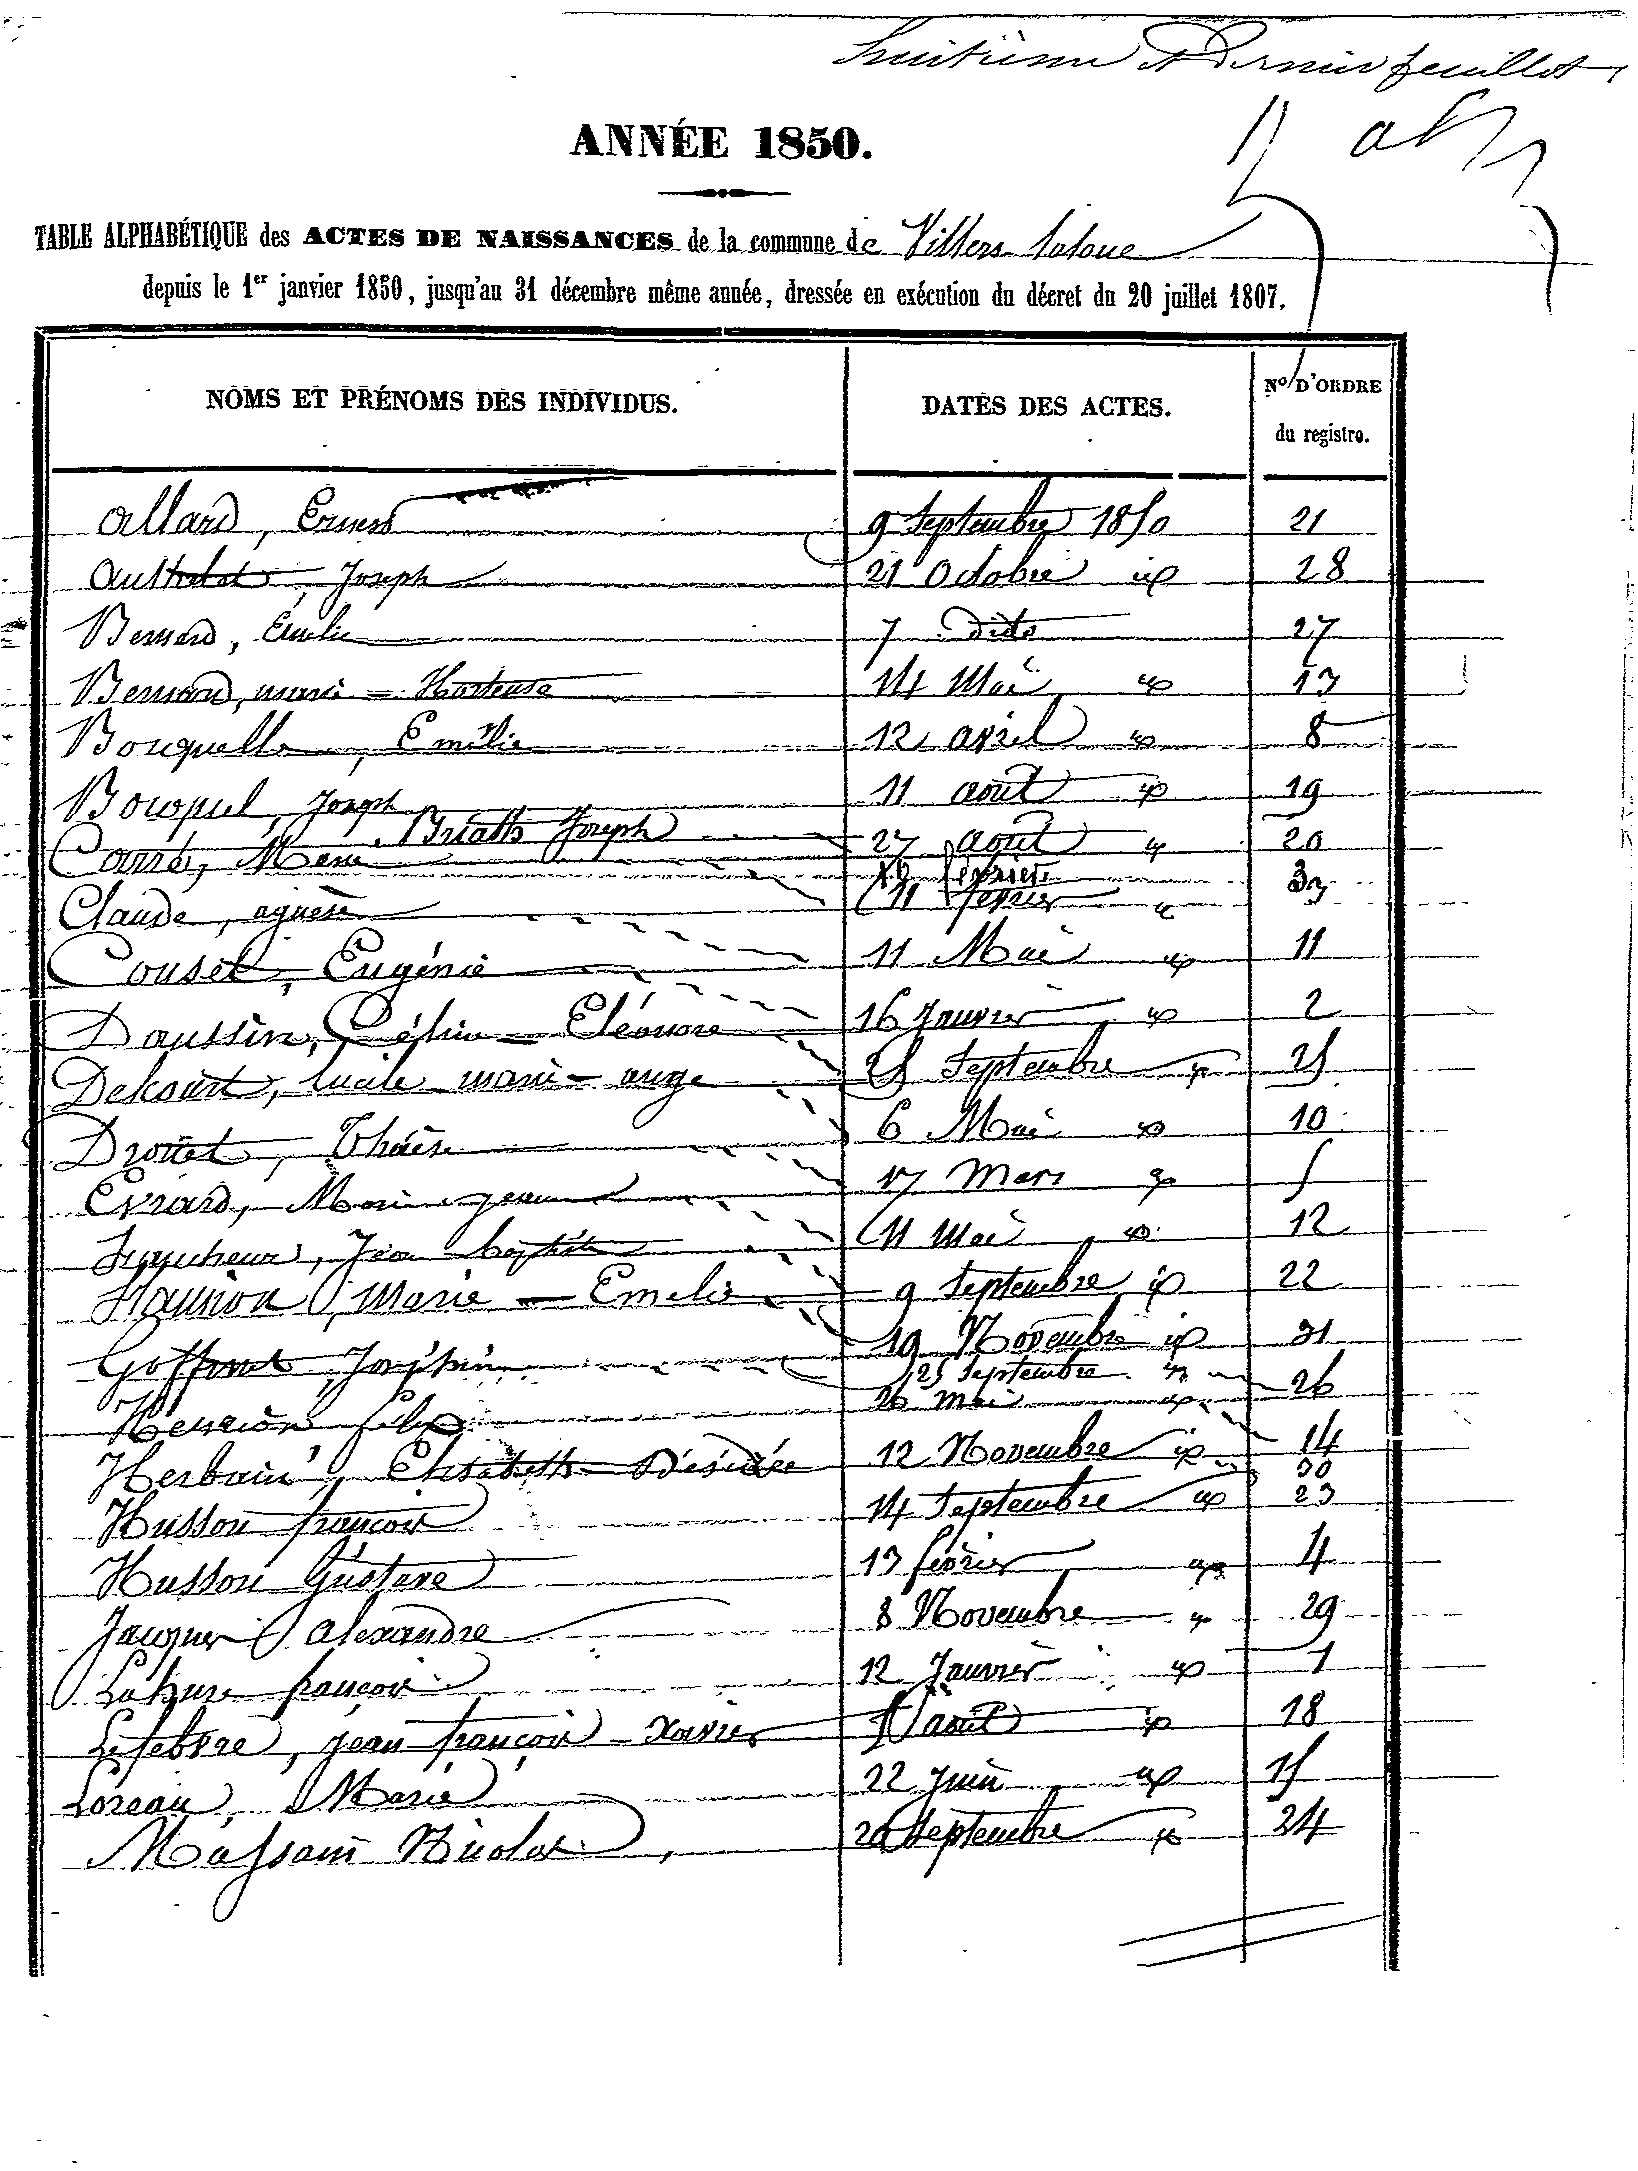 huitième et dernier feuillet
ANNÉE 1850.
TABLE ALPHABÉTIQUE des ACTES DE NAISSANCES de la commune de Villers
depuis le 1er janvier 1850, jusqu'au 31 décembre même année, dressée en exécution du décret du 20 juillet 1807.
NOMS ET PRÉNOMS DES INDIVIDUS. DATES DES ACTES. No D'ORDRE
du registre.
Allard, Ernest 9 Septembre 1850 21
Joseph 21 Octobre 28
Bernard, Emélie 7 dito 27
Bernard, marie - Hortense 14 Mai 13
Bouquelle, Emélie 12 avril 8
Joseph 11 août 19
Briall Joseph
Carré, Marie 27 août 20
fevrier
Claude, agnese 11 fevrier 3
Couset, Eugénie 11 Mai 11
Daussin, Eléonore 16 Janvier 2
Delcourt, lucile marie - ange 25 Septembre 25
Drouet, Thaïse 6 Mai 10
Evrard, Marie jeanne 17 Mars 5
Jean baptiste 11 Mai 12
Marie - Emelie 9 Septembre 22
Goffinet, Joséphine 19 Novembre 31
25 Septembre 26
Henrion felix 26 Mai
Herbain, Elisabeth - Désirée 12 Novembre 14
30
Husson françois 14 Septembre 23
Husson Gustave 13 fevrier 4
Jacques Alexandre 8 Novembre 29
Lahure françois 12 Janvier 1
Lefebvre, jean françois - Xavier août 18
Loreau, Marie 22 Juin 15
Massain Nicolas 20 Septembre 24